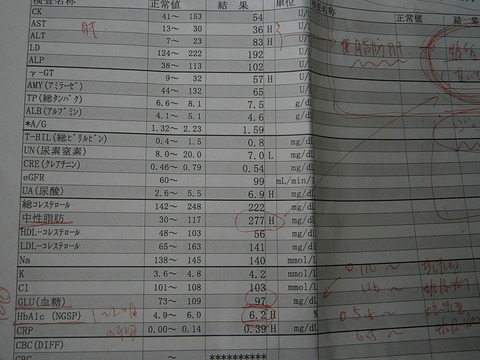 検査名称 正常値 結果 単位 正常値 結果
CK 41～ 153 54 U/
AST 13～ 30 36 H U/
ALT 7～ 23 83 H U/
LD 124～ 222 192 U/
ALP 38～ 113 102 U/
γ-GT 9～ 32 57 H U/
AMY(アミラーゼ) 44～ 132 65 U/
TP(総タンパク) 6.6～ 8.1 7.5 g/d
ALB(アルブミン) 4.1～ 5.1 4.6 g/d
*A/G 1.32～ 2.23 1.59
T-BIL(総ビリルビン) 0.4～ 1.5 0.8 mg/d
UN(尿素窒素) 8.0～ 20.0 7.0 L mg/d
CRE(クレアチニン) 0.46～ 0.79 0.54 mg/d
eGFR 60～ 99 mL/min/
UA(尿酸) 2.6～ 5.5 6.9 H mg/d
総コレステロール 142～ 248 222 mg/dl
中性脂肪 30～ 117 277 H mg/dl
HDL-コレステロール 48～ 103 56 mg/dl
LDL-コレステロール 65～ 163 141 mg/dl
Na 138～ 145 140 mmol/L
K 3.6～ 4.8 4.2 mmol/L
Cl 101～ 108 103 mmol/L
GLU(血糖) 73～ 109 97 mg/dl
HbA1c(NGSP) 4.9～ 6.0 6.2 H %
CRP 0.00～ 0.14 0.39 H mg/dl
CBC(DIFF)
CBC **********
肝
脂肪肝